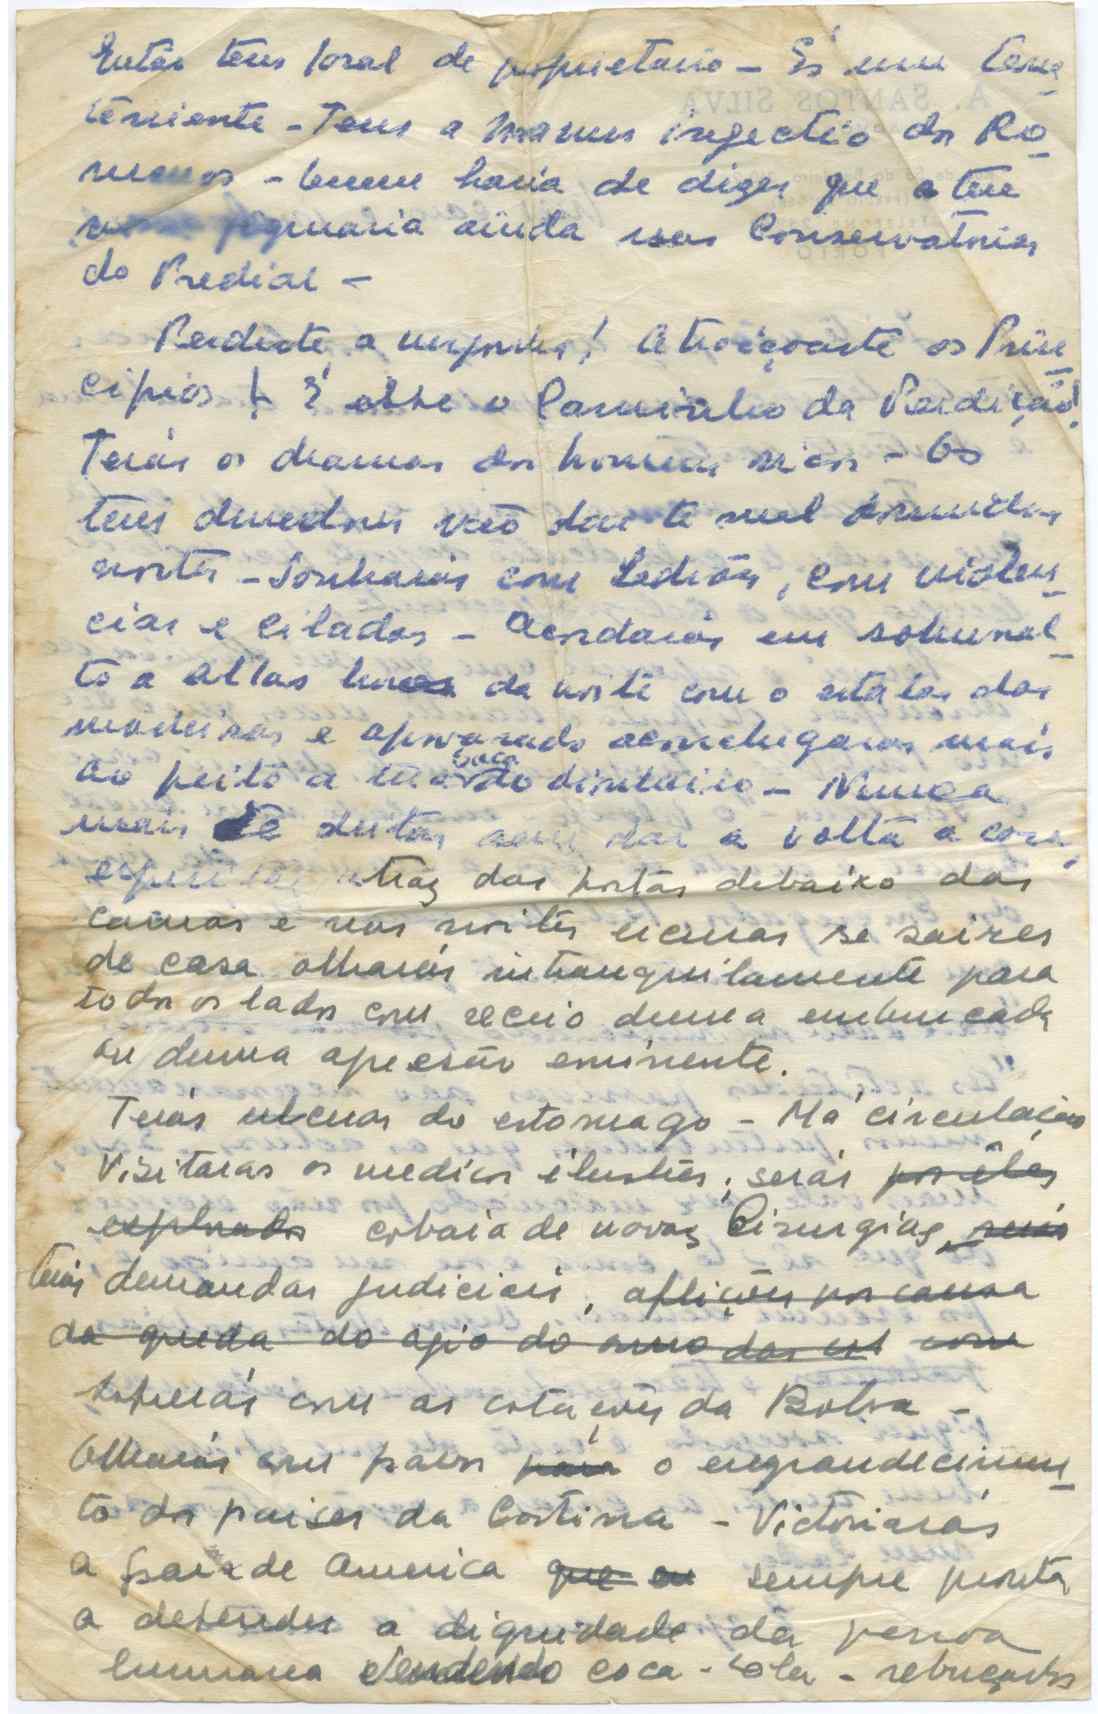 Então tens foral de proprietario - És um tena
teniente - Tens a manus injectio dos Ro
manos - Quem havia de dizer que a tua
figuraria ainda nas Conservatorias
do Predial -
Perdeste a vergonha! Atraiçoaste os Prin
cipios! É este o Caminho da Perdição!
Terás os dramas dos homens ricos - Os
teus devedores vão dar te mal dormidas
noites - Sonharás com Ladrões, com violen
cias e ciladas - Acordarás em sobresal
to a altas horas da noite com o estalar das
madeiras e apavorado aconchegaras mais
ao peito a tua saca do dinheiro - Nunca
mais te deitas sem dar a volta a casa,
espreitar atraz das portas debaixo das
camas e nas noites escuras se saires
de casa olharás intranquilamente para
todos os lados com receio duma emboscada
ou duma agressão eminente.
Terás ulceras do estomago - Má circulação
Visitaras os medicos ilustres, serás por êles
explorado cobaia de novas Cirurgias, serás
terás demandas judiciais, aflições por causa
da queda do agio do ouro das com
sofrerás com as cotações da Bolsa -
Olharás com pavor para o engrandecimen
to dos paises da Cortina - Victoriarás
a grande America que em sempre pronta
a defender a dignidade da pessoa
humana vendendo coca-cola - rebuçados